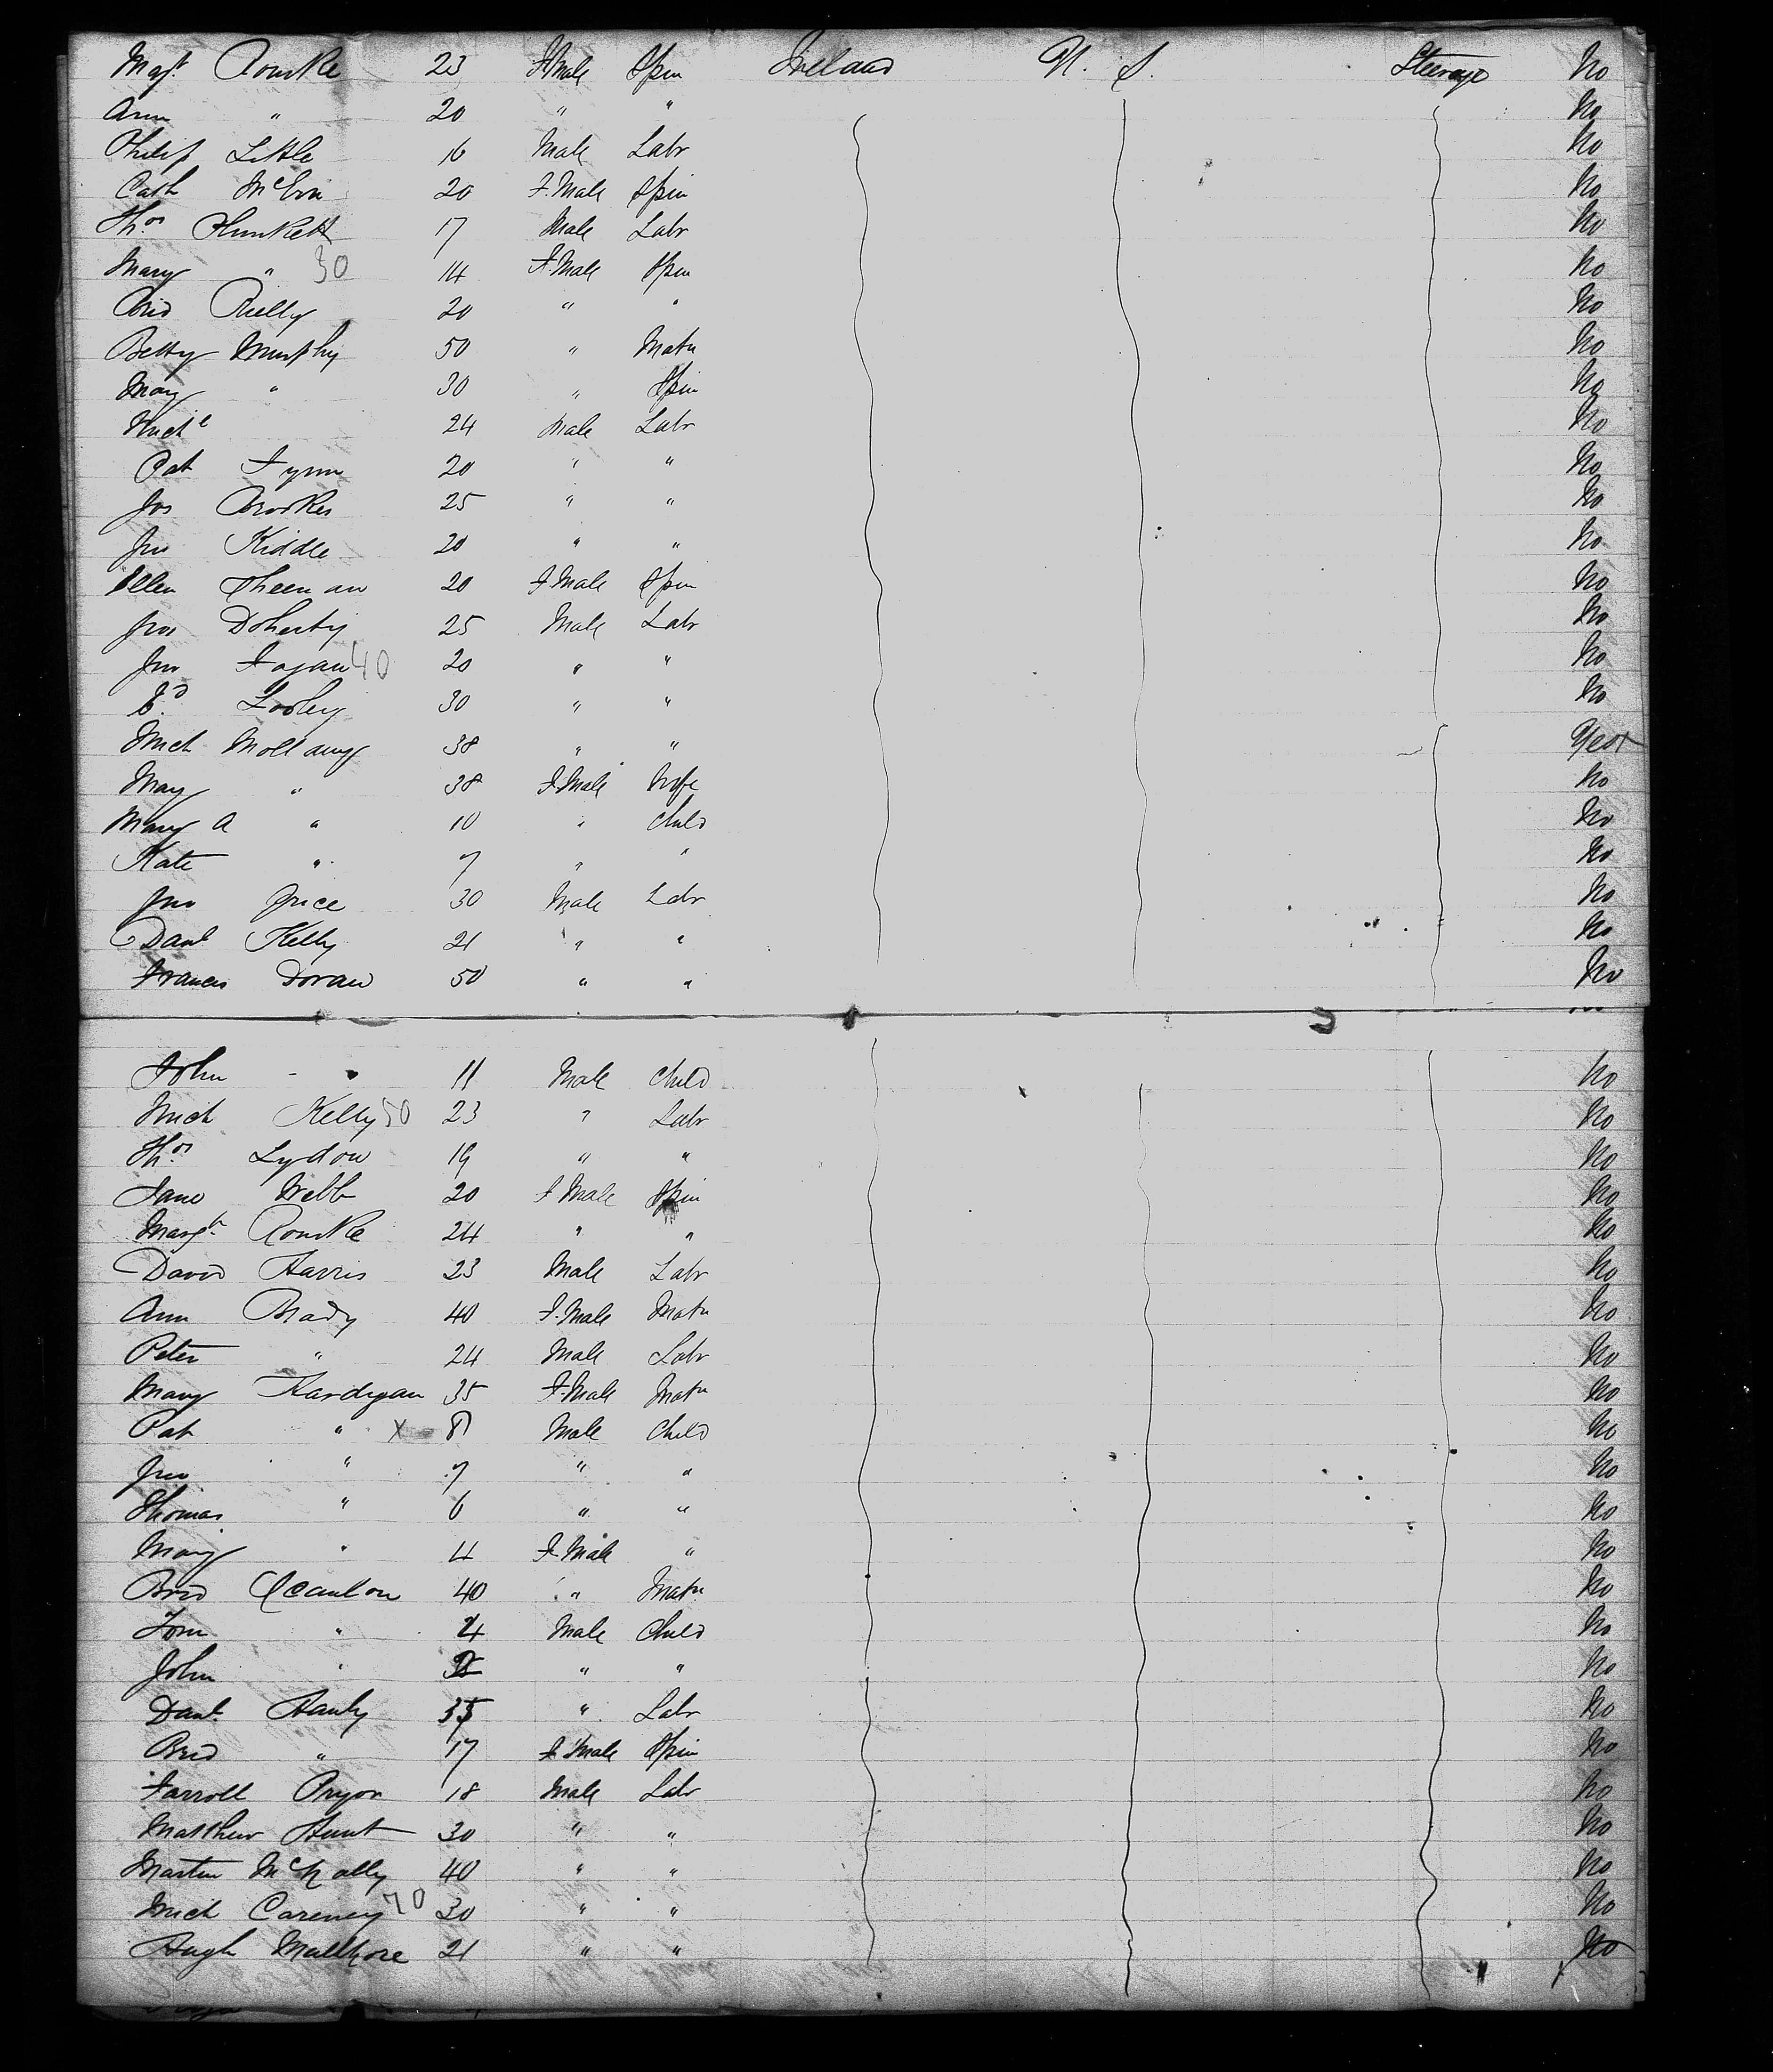 Mag.t Rourke 23 F.Male Spin Ireland U. S. Steerage No
Ann " 20 " " No
Philip Little 16 Male Labr No
Cath 20 F.Male Spin No
Thos Plunkett 17 Male Labr No
Mary " 30 14 F.Male Spin No
Brid Reilly 20 " " No
Betty Murphy 50 " Matn No
Mary " 30 " Spin No
Michl 24 Male Labr No
Pat Fynn 20 " " No
Jos Brookes 25 " " No
Jno Kiddle 20 " " No
Ellen Sheenan 20 F.Male Spin No
Jno Doherty 25 Male Labr No
Jno Fagan 40 20 " " No
Ed. Looley 30 " " No
Mich Mollamy 38 " " Yes
Mary " 38 F.Male Wife No
Mary A " 10 " Child No
Kate " 7 " " No
Jno Price 30 Male Labr No
Danl Kelly 21 " " No
Francis Doran 50 " " No
John - " 11 Male Child No
Mich Kelly 50 23 " Labr No
Thos Lydon 19 " " No
Jane Webb 20 F Male Spin No
Margt Rourke 24 " " No
David Harris 23 Male Labr No
Ann Brady 40 F.Male Matn No
Peter " 24 Male Labr No
Mary Kardigan 35 F.Male Matn No
Pat " x 8 Male Child No
Jno " 7 " " No
Thomas " 6 " " No
Mary " 4 F.Male " No
Brid Scanlon 40 " Matn No
Tom " 4 Male Child No
John " " " No
Danl Hanly 35 " Labr No
Brid " 17 F Male Spin No
Farrell Pryor 18 Male Labr No
Matthew Hunt 30 " " No
Martin McNally 40 " " No
Mich Careney 70 30 " " No
Hugh 21 " " No